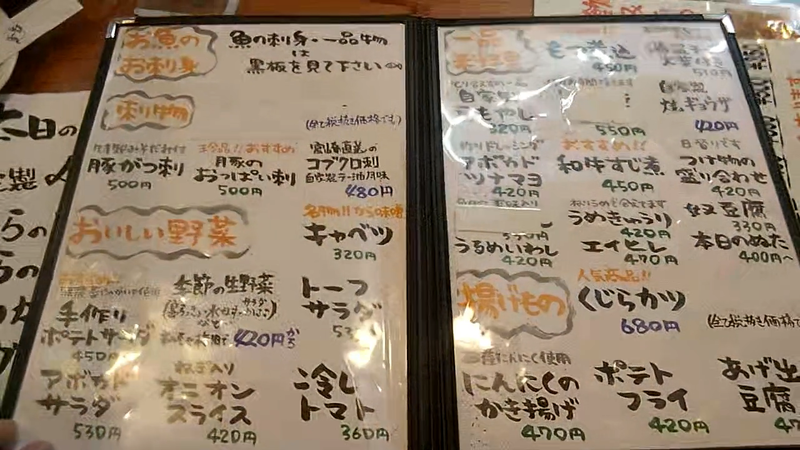 お魚の
お刺身
魚の刺身・一品物
は
黒板を見て下さい
刺し物
(全て税抜き価格です)
豚がつ刺
500円
珍品!!おすすめ
豚の
おっぱい刺
500円
宮崎直送の
コブクロ刺
480円
おいしい野菜
名物!!から味噌
キャベツ
320円
手作り
ポテトサラダ
450円
季節の生野菜
420円から
トーフ
サラダ
アボカド
サラダ
530円
ねぎ入り
オニオン
スライス
420円
冷し
トマト
360円
一品
もつ煮込
450円
510円
自家製
320円
550円
自家製
焼ギョウザ
420円
アボカド
ツナマヨ
420円
おすすめ!!
和牛すじ煮
450円
日替りです
つけ物の
盛り合わせ
420円
うめきゅうり
420円
奴豆腐
330円
うるめいわし
420円
エイヒレ
470円
本日のぬた
400円〜
揚げもの
人気商品!!
くじらカツ
680円
(全て税抜き価格で
にんにく使用
にんにくの
かき揚げ
470円
ポテト
フライ
420円
あげ出
豆腐
本日の